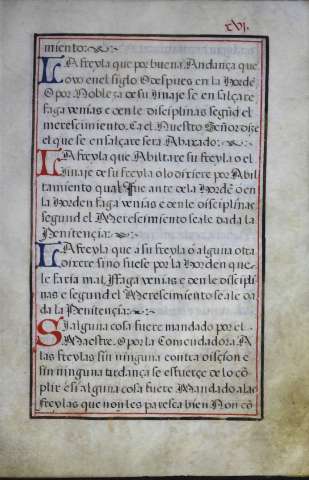 cvj.
miento:
LA freyla que por buena Andança que
ovo en el siglo O despues en la Hordē
O por Nobleza de su linaje se en salçare
faga venias e den le disciplinas segūd el
merescimiento. Ca el Nuestro Señor dize
el que se en salçare sera Abaxado:
LA freyla que Abiltare su freyla o el
linaje de su freyla o lo dixere por Abil
tamiento qual fue ante de la Hordē o en
la Horden faga venias e den le disciplinas
segund el Merescimiento sea le dada la
Penitençia:
LA freyla que a su freyla o alguna otra
dixere sino fuese por la Horden que
le faria mal ffaga venias e den le discipli
nas e segund el Merescimiento sea le da
da la Penitençia:
Si alguna cosa fuere mandado por el
Maestre O por la Comendadora A
las freylas sin ninguna contra disçion e
sin ninguna tardança se esfuerçe de lo cō
plir e si alguna cosa fuere Mandado a las
freylas que non les paresca bien Non cō